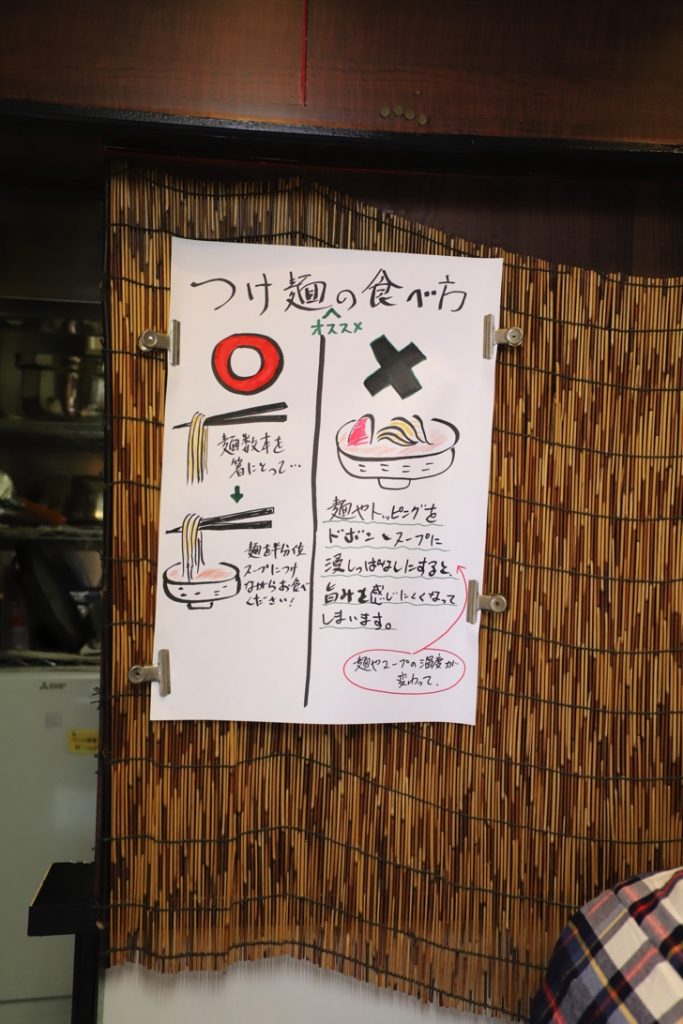 つけ麺の食べ方
オススメ
麺数本を
箸にとって…
麺を半分位
スープにつけ
ながらお食べ
ください!
麺やトッピングを
ドボンとスープに
浸しっぱなしにすると、
旨みを感じにくくなって
しまいます。
麺やスープの温度が
変わって、